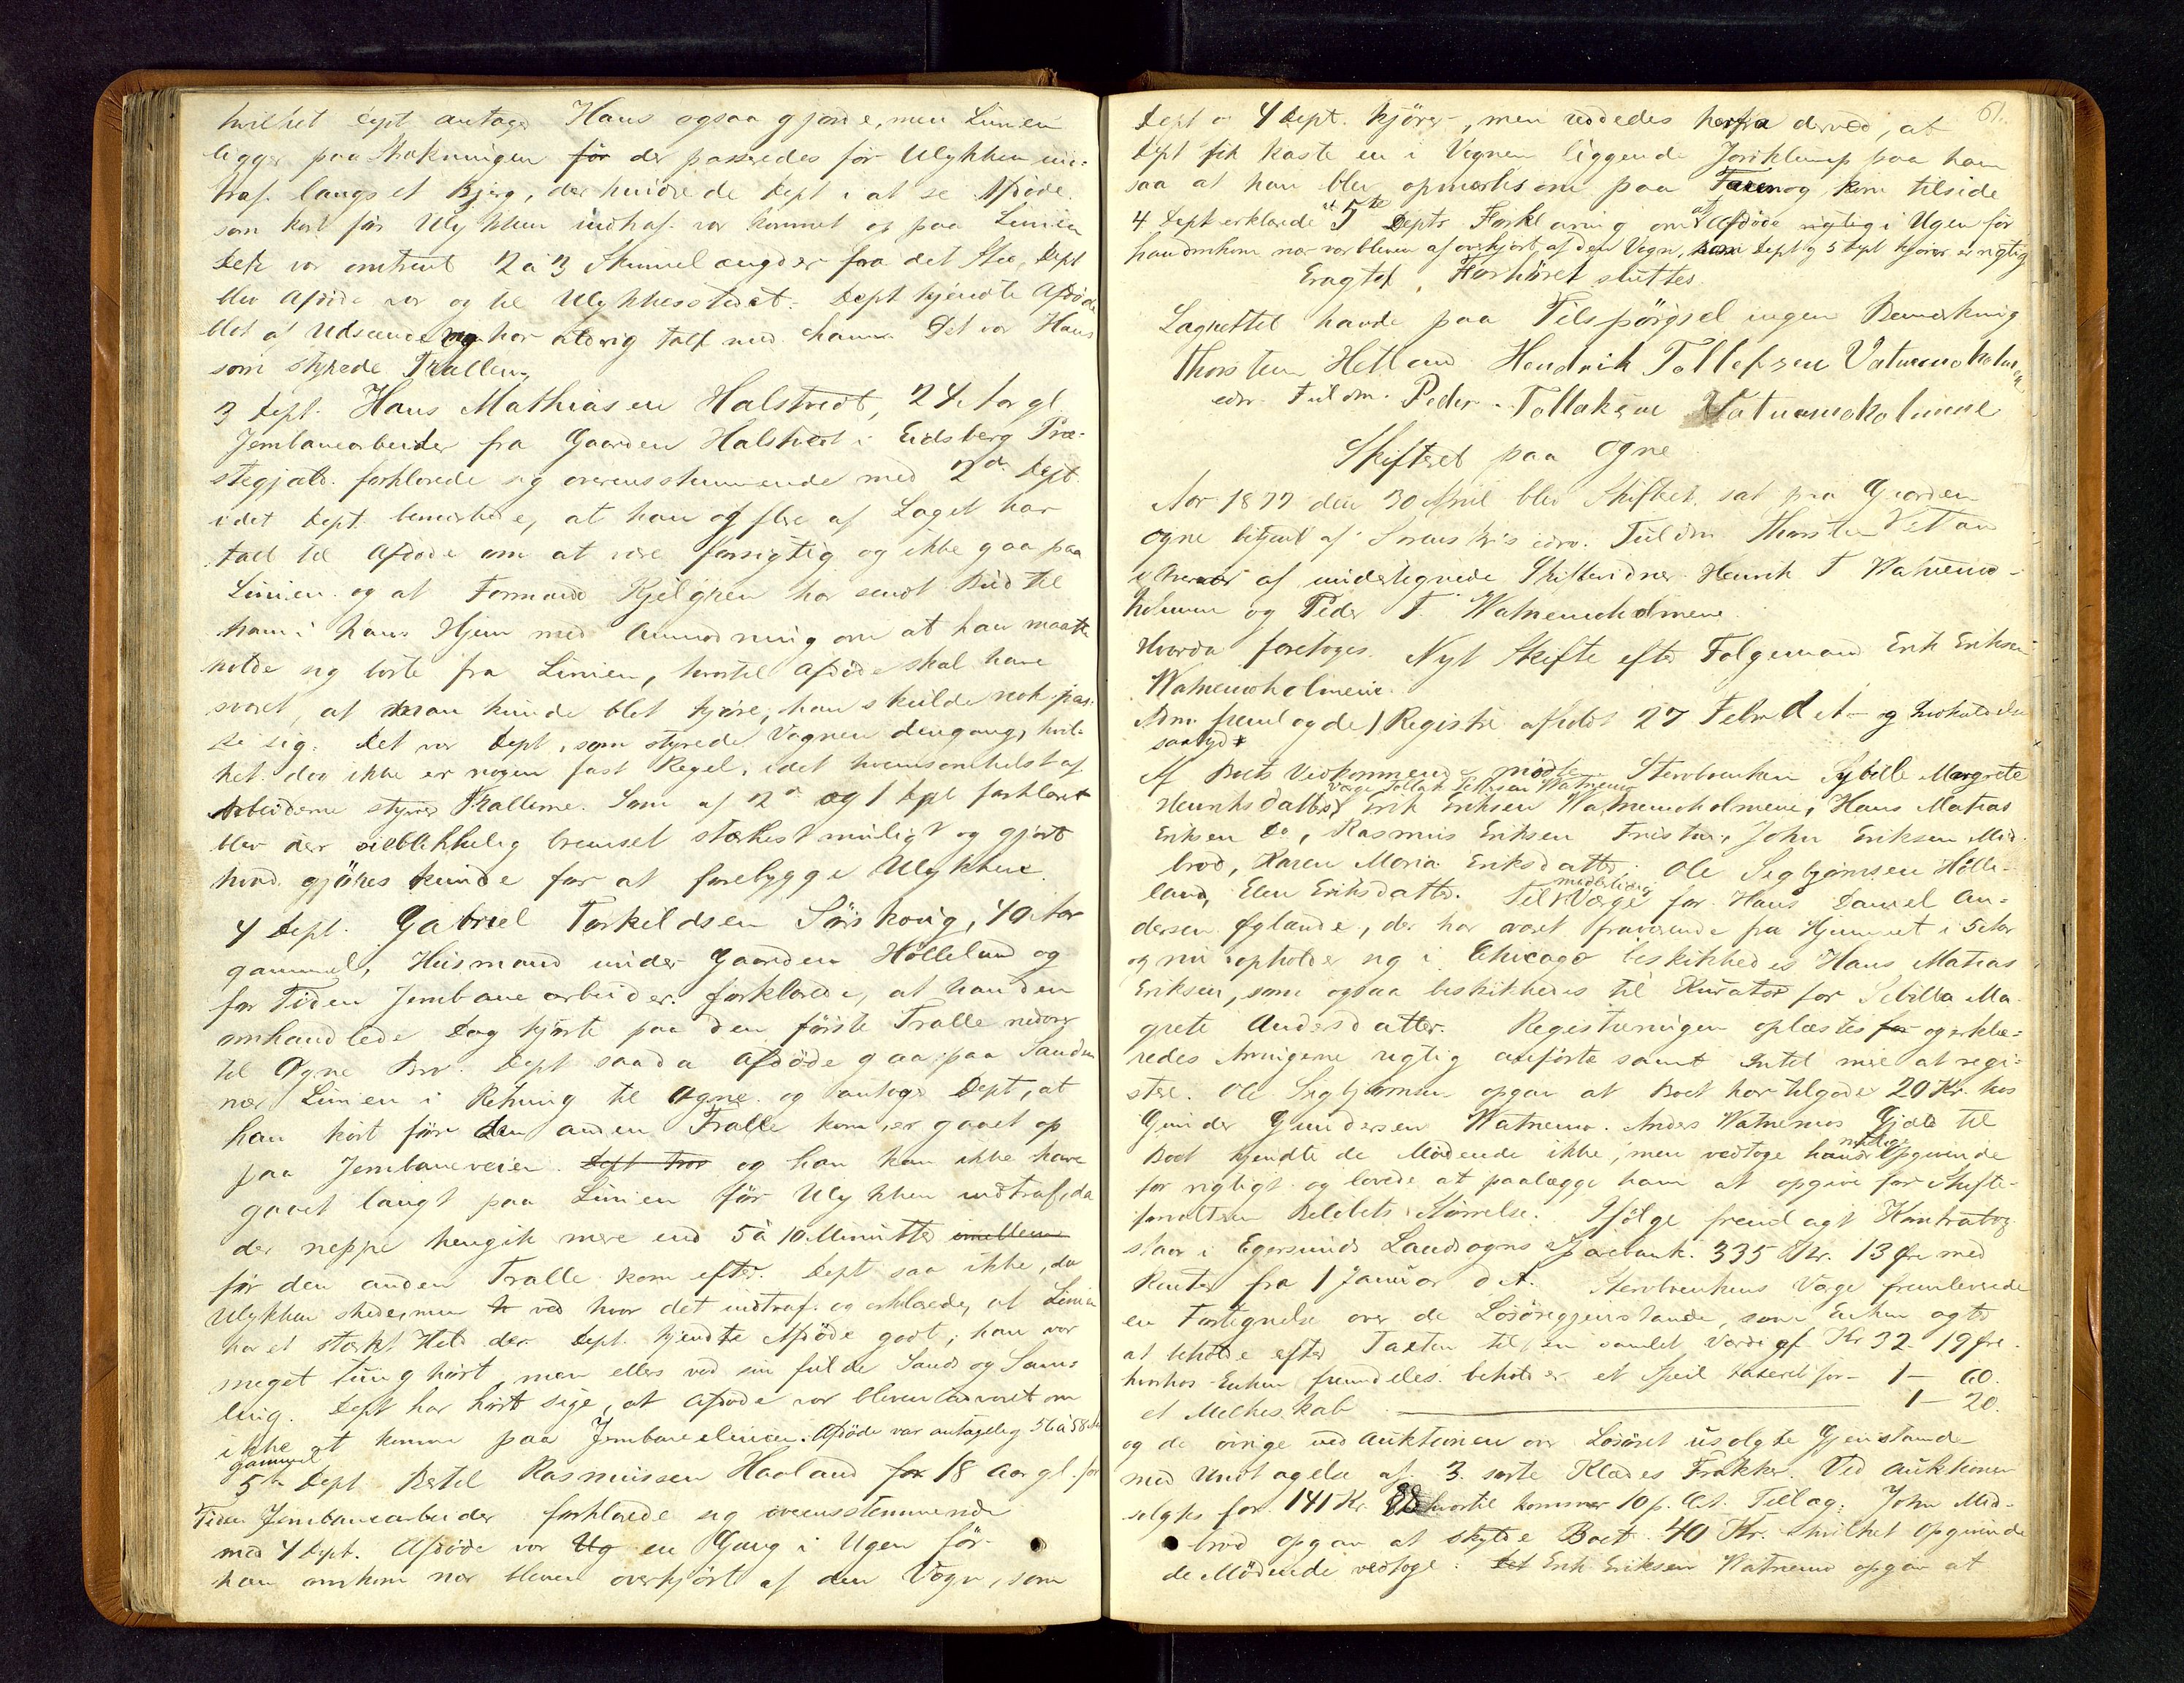 hvilket Dept antager Hans ogsaa gjorde, men Linien
ligger paa Strækningen før der passeredes før Ulykken ind-
traf langs et Bjerg, der hindrede Dept i at se Afdøde
som kort før Ulykken indtraf var kommet op paa Linien
Det var omtrent 2 a 3 Skinnelængder fra det Sted, Dept
blev Afdøde var og til Ulykkesstedet. Dept kjendte Afdøde
blot af Udseende og har aldrig talt med ham. Det var Hans
som styrede Trallen.
3 Dept. Hans Mathiasen Halstvedt, 24 Aar gl
Jernbanearbeider fra Gaarden Halstvedt i Eidsberg Præ-
stegjæld. forklarede sig overensstemmende med 2den Dept.
idet Dept. bemærkede, at han og flere af Laget har
talt til Afdøde om at være forsigtig og ikke gaa paa
Linien og at Formand Kjelgren har sendt Bud til
ham i hans Hjem med Anmodning om at han maatte
holde sig borte fra Linien, hvortil Afdøde skal have
svaret, at man kunde blot kjøre, han skulde nok pas-
se sig. Det var Dept, som styrede Vognen dengang, hvil-
ket dog ikke er nogen fast Regel, idet hvemsomhelst af
Arbeiderne styrer Trallerne. Som af 2den og 1 Dept forklaret
blev der øieblikkelig bremset stærkest muligt og gjort
hvad gjøres kunde for at forebygge Ulykken.
4 Dept. Gabriel Torkildsen Sørskog, 40 Aar
gammel, Husmand under Gaarden Hølleland og
for Tiden Jernbanearbeider. forklarede, at han den
omhandlede Dag kjørte paa den første Tralle nedover
til Ogne Bro. Dept saa da Afdøde gaa paa Sanden
nær Linien i Retning til Ogne og antager Dept, at
han kort før den anden Tralle kom er gaaet op
paa Jernbaneveien. Dept tror og han kan ikke have
gaaet langt paa Linien før Ulykken indtraf, da
der neppe hengik mere end 5 à 10 Minutter imellem
før den anden Tralle kom efter. Dept saa ikke, da
Ulykken skede, men ved hvor det indtraf og erklærede, at Linien
har et stærkt Held der. Dept. kjendte Afdøde godt; han var
meget tunghørt, men ellers ved sin fulde Sands og Sam-
ling. Dept har hørt sige, at Afdøde var bleven advaret om
ikke at komme paa Jernbanelinien. Afdøde var antagelig 56 à 58 Aar
gammel
5te Dept Bertel Rasmussen Haaland for 18 Aar gl. for
Tiden Jernbanearbeider forklarede sig overensstemmende
med 4 Dept. Afdøde var en Gang i Ugen før
han omkom nær bleven overkjørt af den Vogn, som
61.
Dept og 4 Dept. kjører, men reddedes herfra derved, at
Dept fik kaste en i Vognen liggende Jordklump paa ham
saa at han blev opmærksom paa Faren og kom tilside
4 Dept erklærede 5te Depts Forklaring om at Afdøde rigtig i Ugen før
han omkom nær var bleven af overkjørt af den Vogn, som Dept og 5 Dept kjører er rigtig
Eragtet, Forhøret sluttes.
Lagrettet havde paa Tilspørgsel ingen Bemærkning
Thorsten Hetland Hendrik Tollefsen Vatnemoholmen
edsv. Fuldm. Peder Tollaksen Vatnemoholmene
Skifteret paa Ogne
Aar 1877 den 30 April blev Skifteret sat paa Gaarden
Ogne betjent af Sorenskr's edsv. Fuldm. Thorsten Hetland
i Overvær af undertegnede Skiftevidner Henrik T Watnemo-
holmene og Peder T. Watnemoholmene
Hvorda foretoges. Nyt Skifte efter Følgemand Erik Eriksen
Watnemoholmene.
Adm. fremlagde 1) Registr. afholdt 27 Febr. d. A. og Indkaldelse
saalyd.
Af Boets Vedkommende mødte Stervboenken Sybille Margrete
Værge Tollak Tollaksen Watnemo
Henriksdatter, Erik Eriksen Watnemoholmene, Hans Matias
Eriksen do, Rasmus Eriksen Fuistad, John Eriksen Mid-
brød, Karen Maria Eriksdatter, Ole Segbjørnsen Hølle-
land, Elen Eriksdatter. Til midlertidig Værge for Hans Daniel An-
dersen Øglænde, der har været fraværende fra Hjemmet i 5 Aar
og nu opholder sig i Chicago beskikkedes Hans Matias
Eriksen, som ogsaa beskikkedes til Kurator for Sibilla Ma-
grete Andersdatter. Registreringen oplæstes for og erklæ-
redes Arvingerne rigtig anførte samt Intet mere at regi-
strere. Ole Segbjørnsen opgav at Boet har tilgode 20 Kr. hos
Gunder Gundersen Watnemo. Anders Watnemos Gjæld til
Boet kjendte de Mødende ikke, men vedtoge hans Opgivende
for rigtigt og lovede at paalægge ham at opgive for Skifte-
forvalteren Beløbets Størrelse. Ifølge fremlagt Kontrabog
staar i Egersunds Landsogns Sparebank. 335 Kr. 13 Øre med
Renter fra 1 Januar d. A. Stervboenkens Værge fremleverede
en Fortegnelse over de Løsøregjenstande, som Enken agter
at beholde efter Taxten til en samlet Værdi af Kr 32 - 19 Øre.
hvorhos Enken fremdeles beholder et Speil taxeret for - 1 - 60.
et Melkeskab 1 - 20.
og de øvrige ved Auktionen over Løsøret usolgte Gjenstande
med Undtagelse af 3. sorte Klædes Frakker. Ved Auktionen
solgtes for 141 Kr. 88 hvortil kommer 10 p. Ct. Tillag. John Mid-
brød opgav at skylde Boet 40 Kr. hvilket Opgivende
de Mødende vedtoge. Erik Eriksen Watnemo opgav at